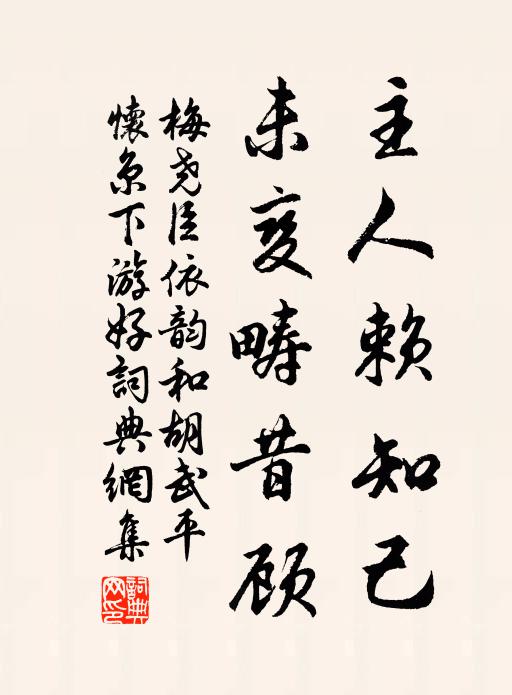 主人赖知己
未变畴昔顾
梅尧臣依韵和胡武平
懷京下游好詞典網集
詞典網印